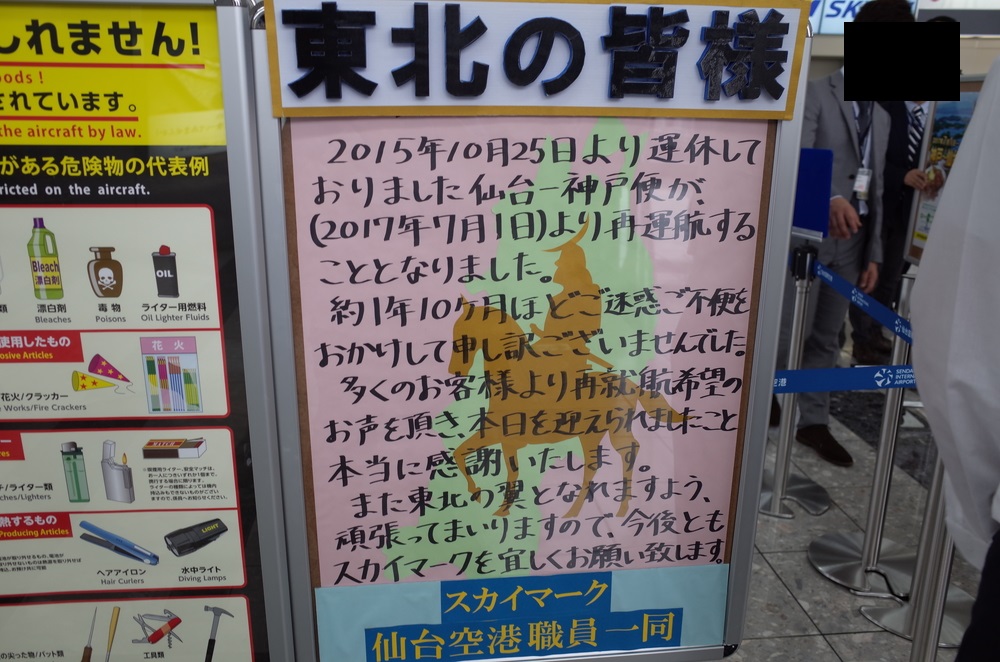 しれません!
oods !
されています。
the aircraft by law.
がある危険物の代表例
ricted on the aircraft.
Bleach
漂白剤
OIL
漂白剤
Bleaches
毒 物
Poisons
ライター用燃料
Oil Lighter Fluids
使用したもの
osive Articles
花 火
花火/クラッカー
Works/Fire Crackers
チ/ライター類
ches/Lighters
熱するもの
Producing Articles
LIGHT
ヘアアイロン
Hair Curlers
水中ライト
Diving Lamps
の尖った物/バット類
工具類
東北の皆様
2015年10月25日より運休して
おりました仙台-神戸便が、
(2017年7月1日)より再運航する
こととなりました。
約1年10ヶ月ほどご迷惑ご不便を
おかけして申し訳ございませんでした。
多くのお客様より再就航希望の
お声を頂き、本日を迎えられましたこと
本当に感謝いたします。
また東北の翼となれますよう、
頑張ってまいりますので、今後とも
スカイマークを宜しくお願い致します。
スカイマーク
仙台空港職員一同
SK
空港
SENDAI
INTERN
AIRPORT